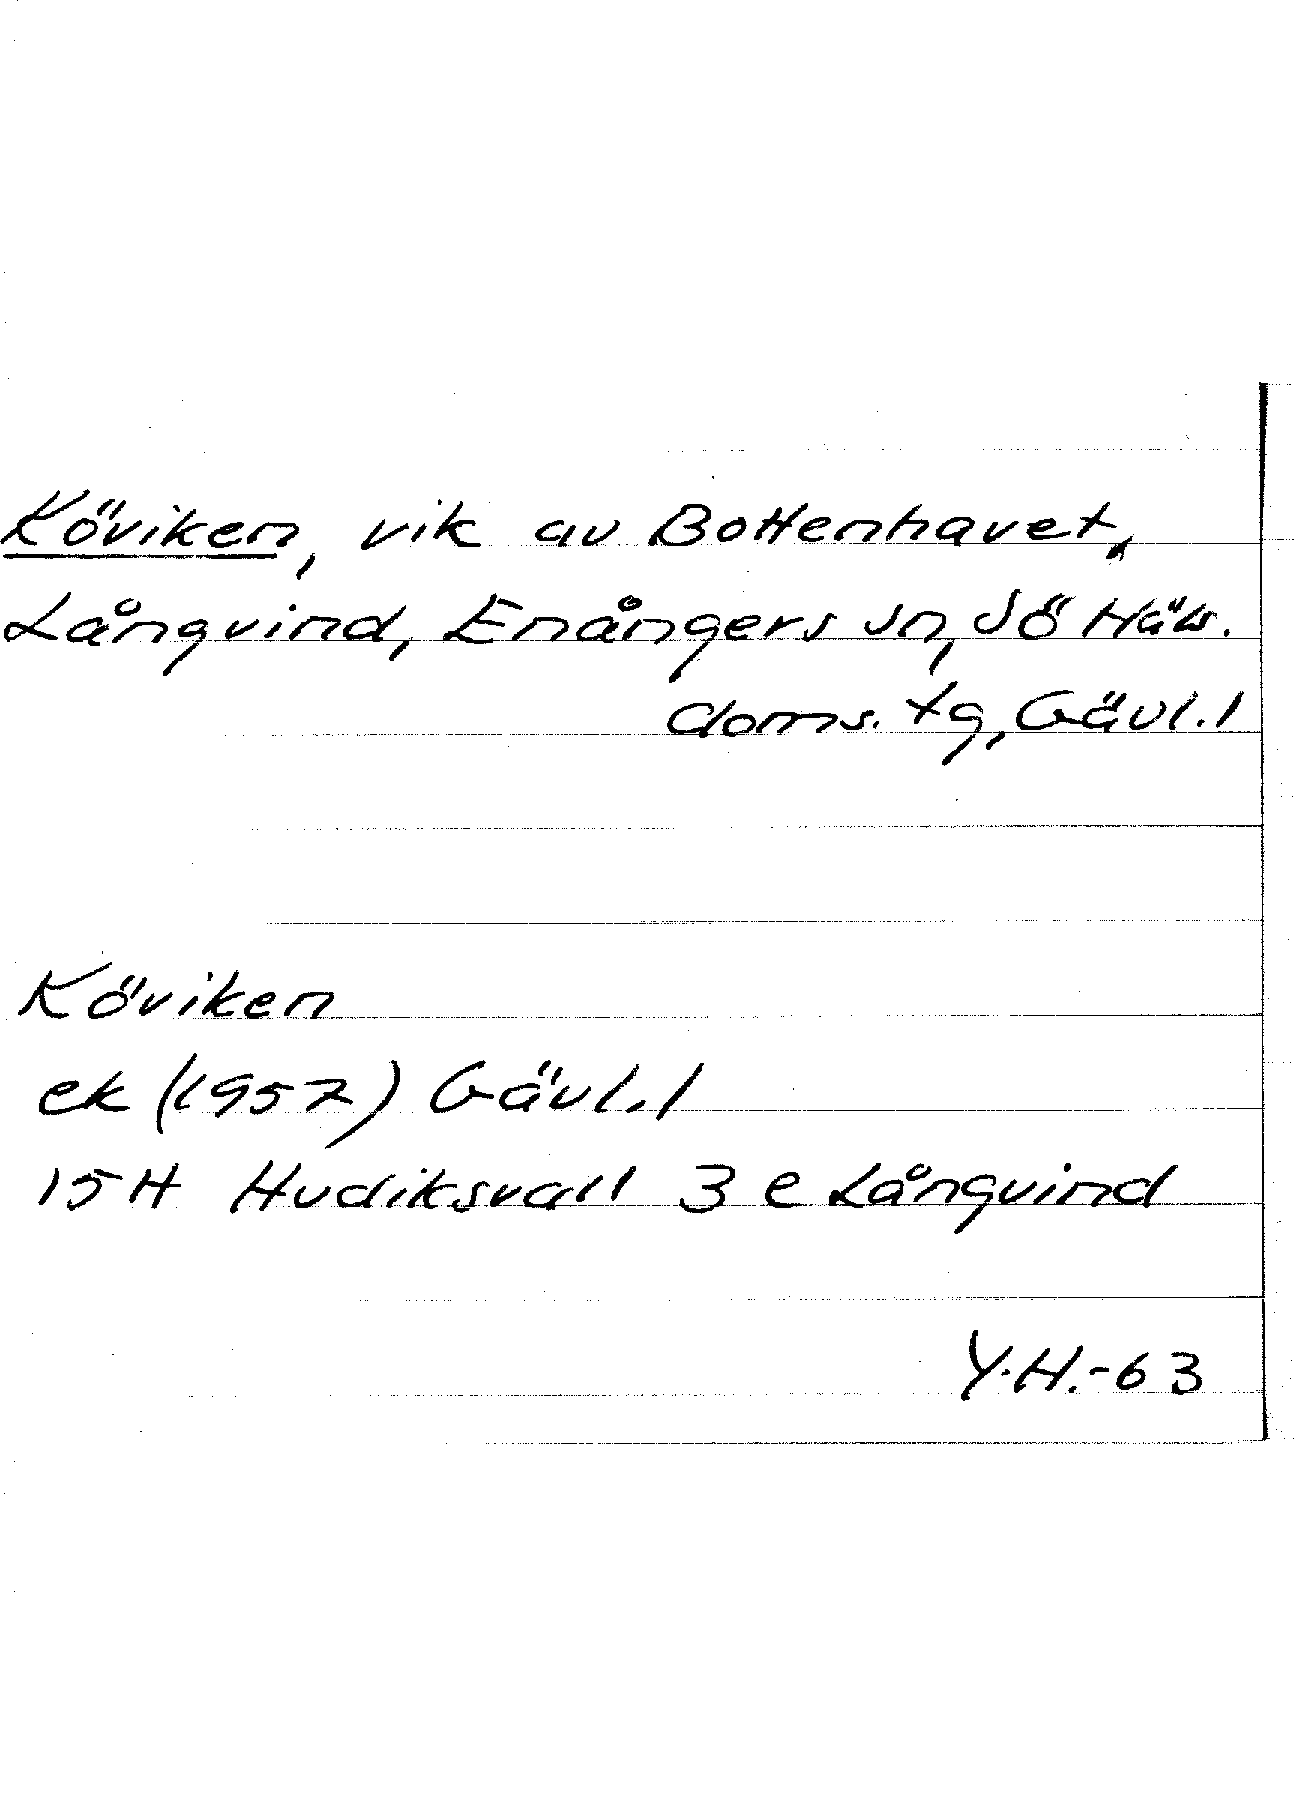 Köviken, vik av Bottenhavet,
Långvind, Enångers sn, Sö Häls.
doms. tg, Gävl.l
Köviken
ek (1957) Gävl.l
15H Hudiksvall 3 e Långvind
Y.H.-63